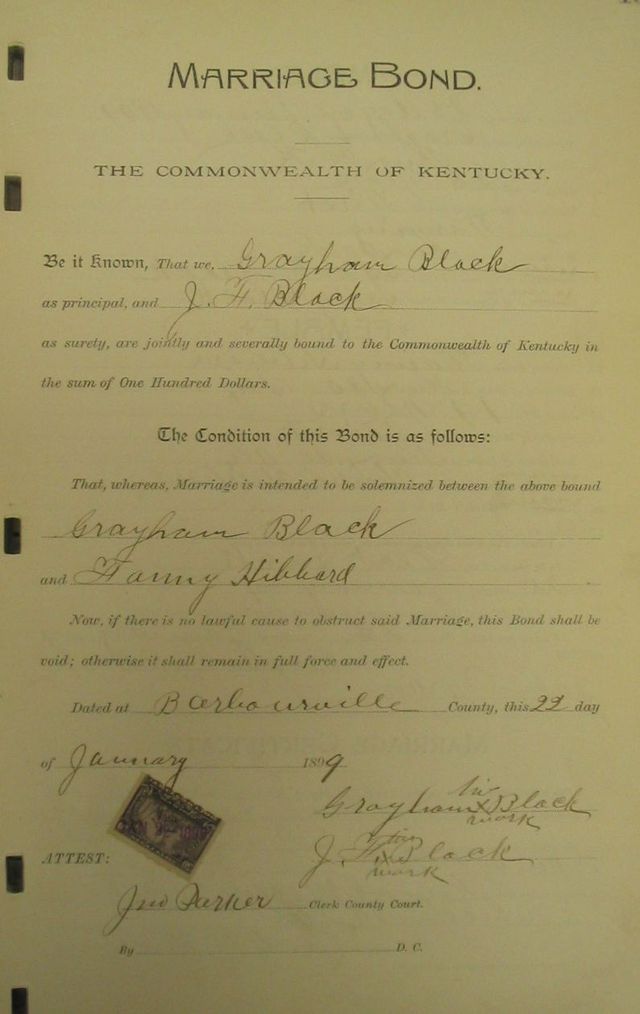 MARRIAGE BOND.
THE COMMONWEALTH OF KENTUCKY.
Be it Known, That we, Grayham Black
as principal, and J. F. Black
as surety, are jointly and severally bound to the Commonwealth of Kentucky in
the sum of One Hundred Dollars.
The Condition of this Bond is as follows:
That, whereas, Marriage is intended to be solemnized between the above bound
Grayham Black
and Fanny Hibbard
Now, if there is no lawful cause to obstruct said Marriage, this Bond shall be
void; otherwise it shall remain in full force and effect.
Dated at Barbourville County, this 22 day
of January 1899
his
Grayham X Black
mark
his
ATTEST: J. F. X Black
mark
Jno Parker Clerk County Court.
By D. C.